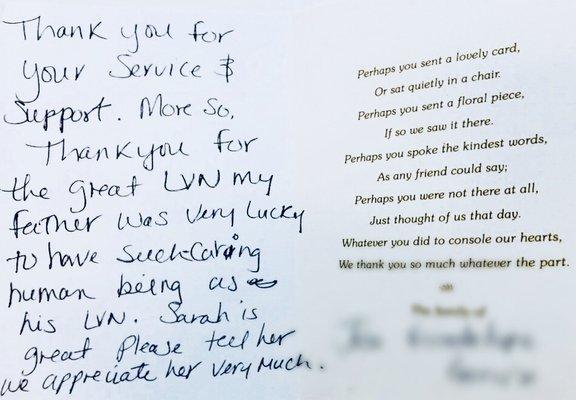 Thank you for
your Service &
Support. More so,
Thankyou for
the great LVN my
father was very lucky
to have such caring
human being as
his LVN. Sarah is
great please tell her
we appreciate her very much.
Perhaps you sent a lovely card,
Or sat quietly in a chair.
Perhaps you sent a floral piece,
If so we saw it there.
Perhaps you spoke the kindest words,
As any friend could say;
Perhaps you were not there at all,
Just thought of us that day.
Whatever you did to console our hearts,
We thank you so much whatever the part.
The family of